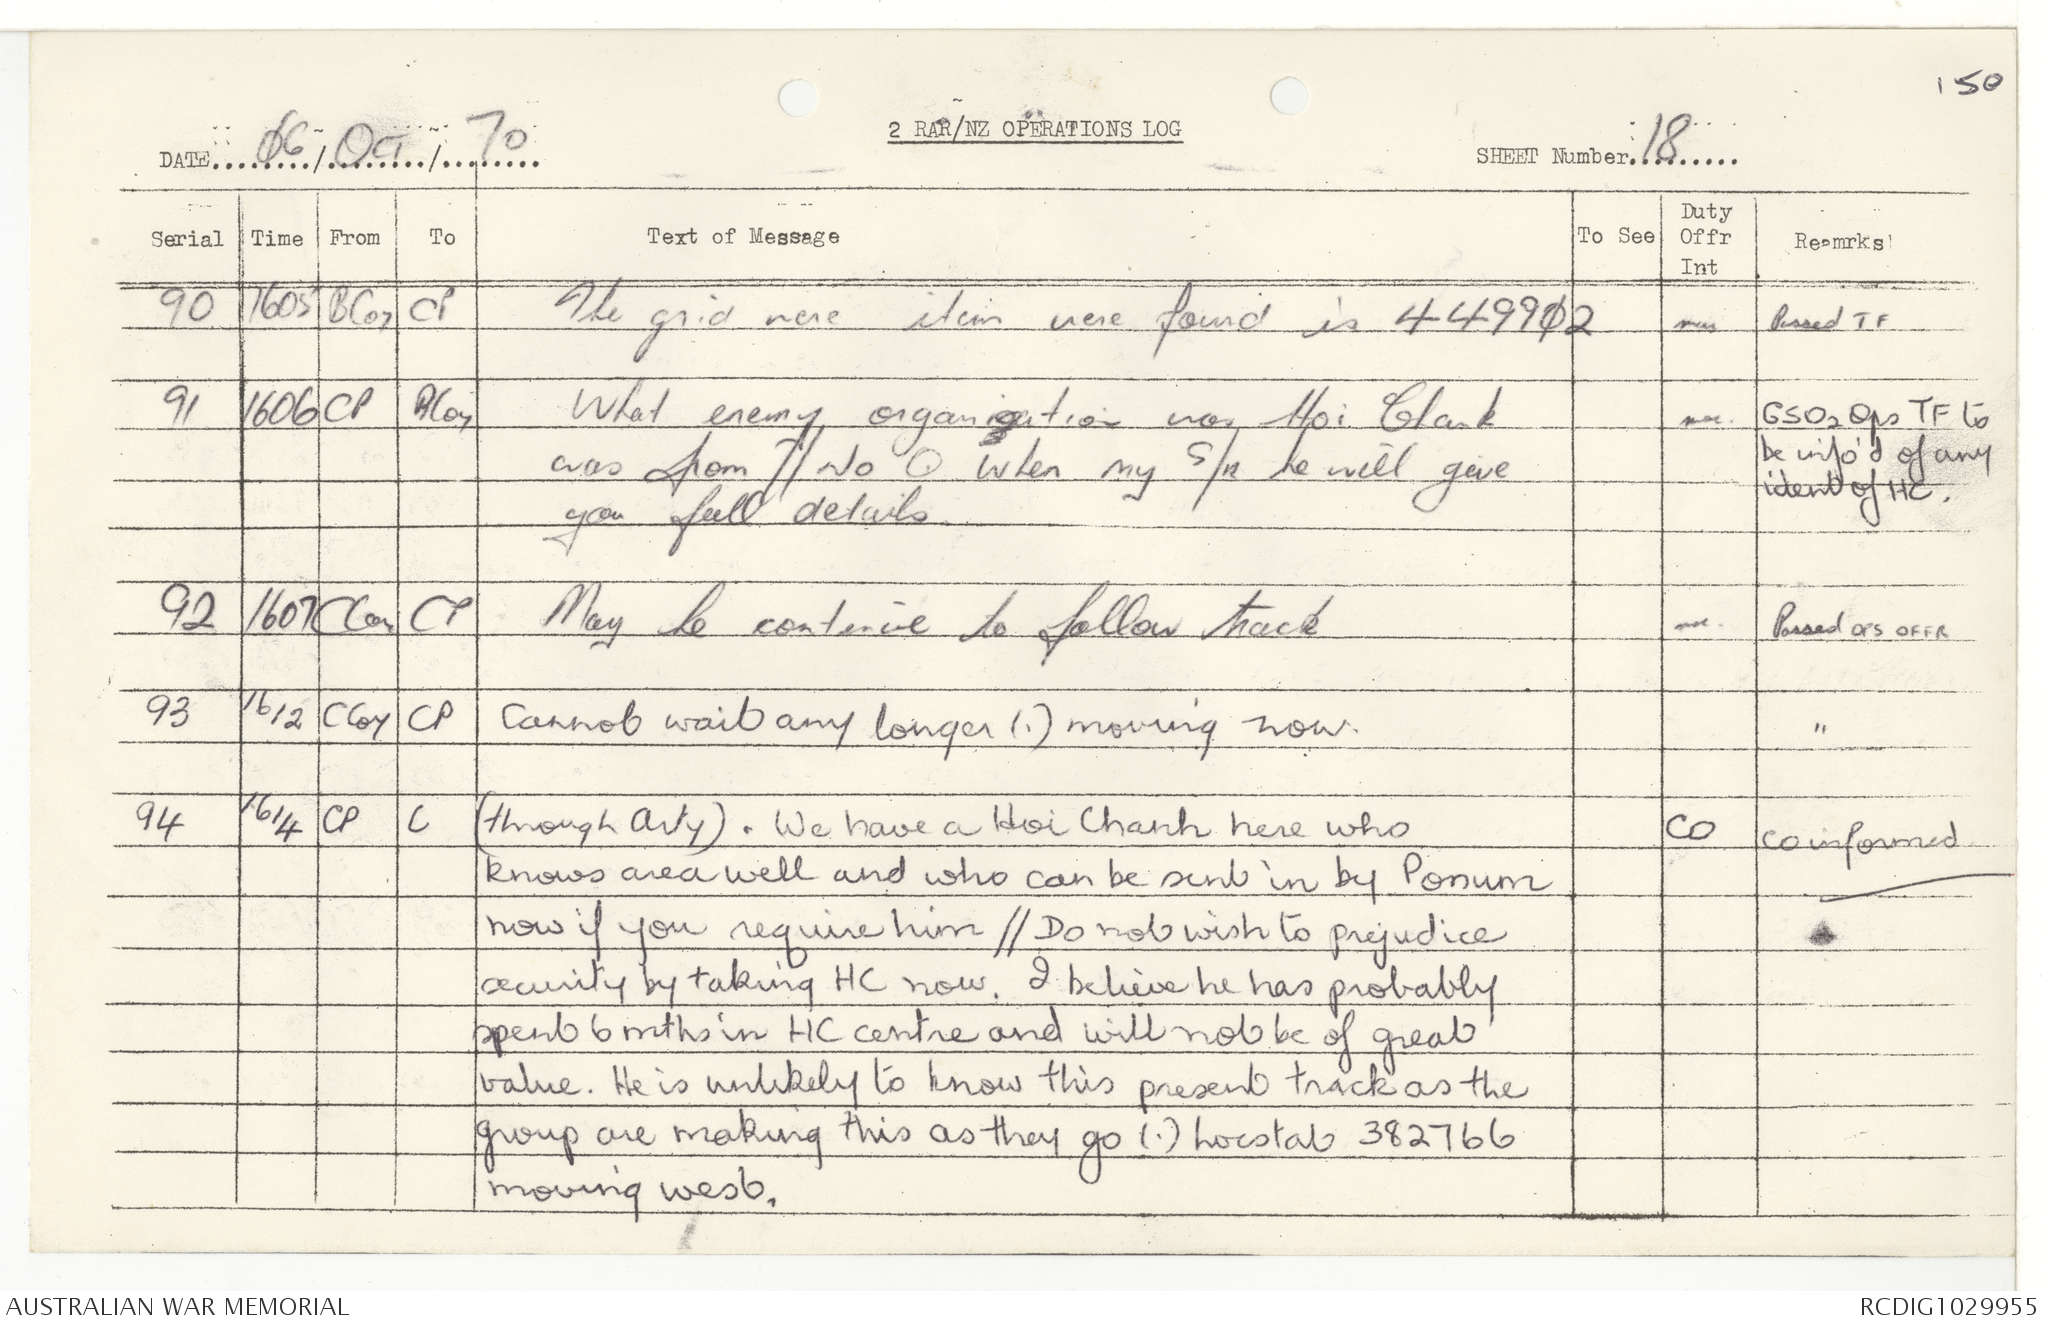 150
2 RAR/NZ OPERATIONS LOG
DATE 06/Oct/70
SHEET Number 18
Serial Time From To Text of Message To See Duty Offr Int Reamrks
90 1605 BCoy CP The grid were item were found is 4499Ø2 Passed TF
91 1606 CP BCoy What enemy organization was Hoi Chank GSO2 Ops TF to
was from // No O when my S/R he will give be info'd of any
you full details ident of HC.
92 1607 CCoy CP May he continue to follow track Passed OPS OFFR
93 1612 CCoy CP Cannot wait any longer (.) moving now. "
94 1614 CP C (through Arty). We have a Hoi Chanh here who CO CO informed
knows area well and who can be sent in by Possum
now if you require him // Do not wish to prejudice
security by taking HC now. I believe he has probably
spent 6 mths in HC centre and will not be of great
value. He is unlikely to know this present track as the
group are making this as they go (.) locstat 382766
moving west.
AUSTRALIAN WAR MEMORIAL
RCDIG1029955